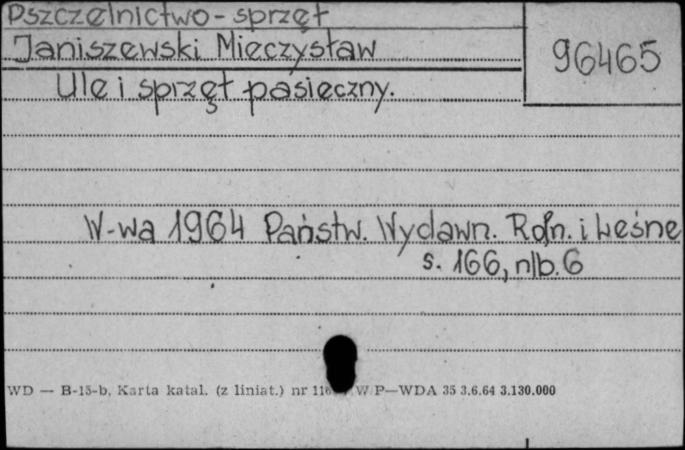 Pszczelnictwo - sprzęt
Janiszewski Mieczysław
96465
Ule i sprzęt pasieczny.
W-wa 1964 Państw. Wydawn. Roln. i Leśne
s. 166, nlb. 6
WD — B-15-b, Karta katal. (z liniat.) nr W P—WDA 35 3.6.64 3.130.000